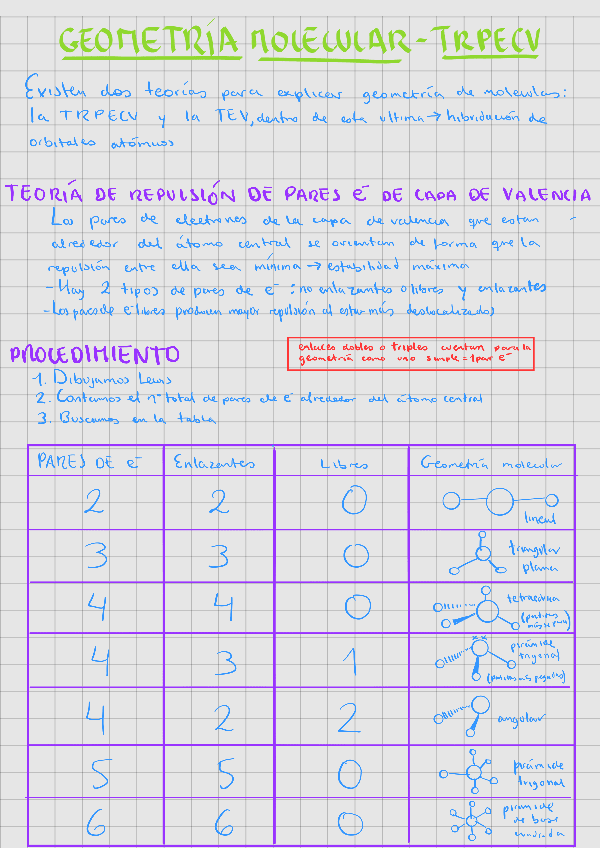 GEOMETRÍA MOLECULAR - TRPECV
Existen dos teorías para explicar geometría de moleculas:
la TRPECV y la TEV, dentro de esta ultima → hibridación de
orbitales atómicos
TEORÍA DE REPULSIÓN DE PARES e⁻ DE CAPA DE VALENCIA
Los pares de electrones de la capa de valencia que estan
alrededor del átomo central se orientan de forma que la
repulsión entre ella sea mínima → estabilidad máxima
- Hay 2 tipos de pares de e⁻: no enlazantes o libres y enlazantes
- Los pares de e⁻ libres producen mayor repulsión al estar más deslocalizados
PROCEDIMIENTO
enlaces dobles o triples cuentan para la
geometría como uno simple = 1 par e⁻
1. Dibujamos Lewis
2. Contamos el nº total de pares de e⁻ alrededor del átomo central
3. Buscamos en la tabla
PARES DE e⁻ Enlazantes Libres Geometría molecular
2 2 0 lineal
3 3 0 triangular
plana
4 4 0 tetraedrica
4 3 1 pirámide
trigonal
4 2 2 angular
5 5 0 pirámide
trigonal
6 6 0 pirámide
de base
cuadrada